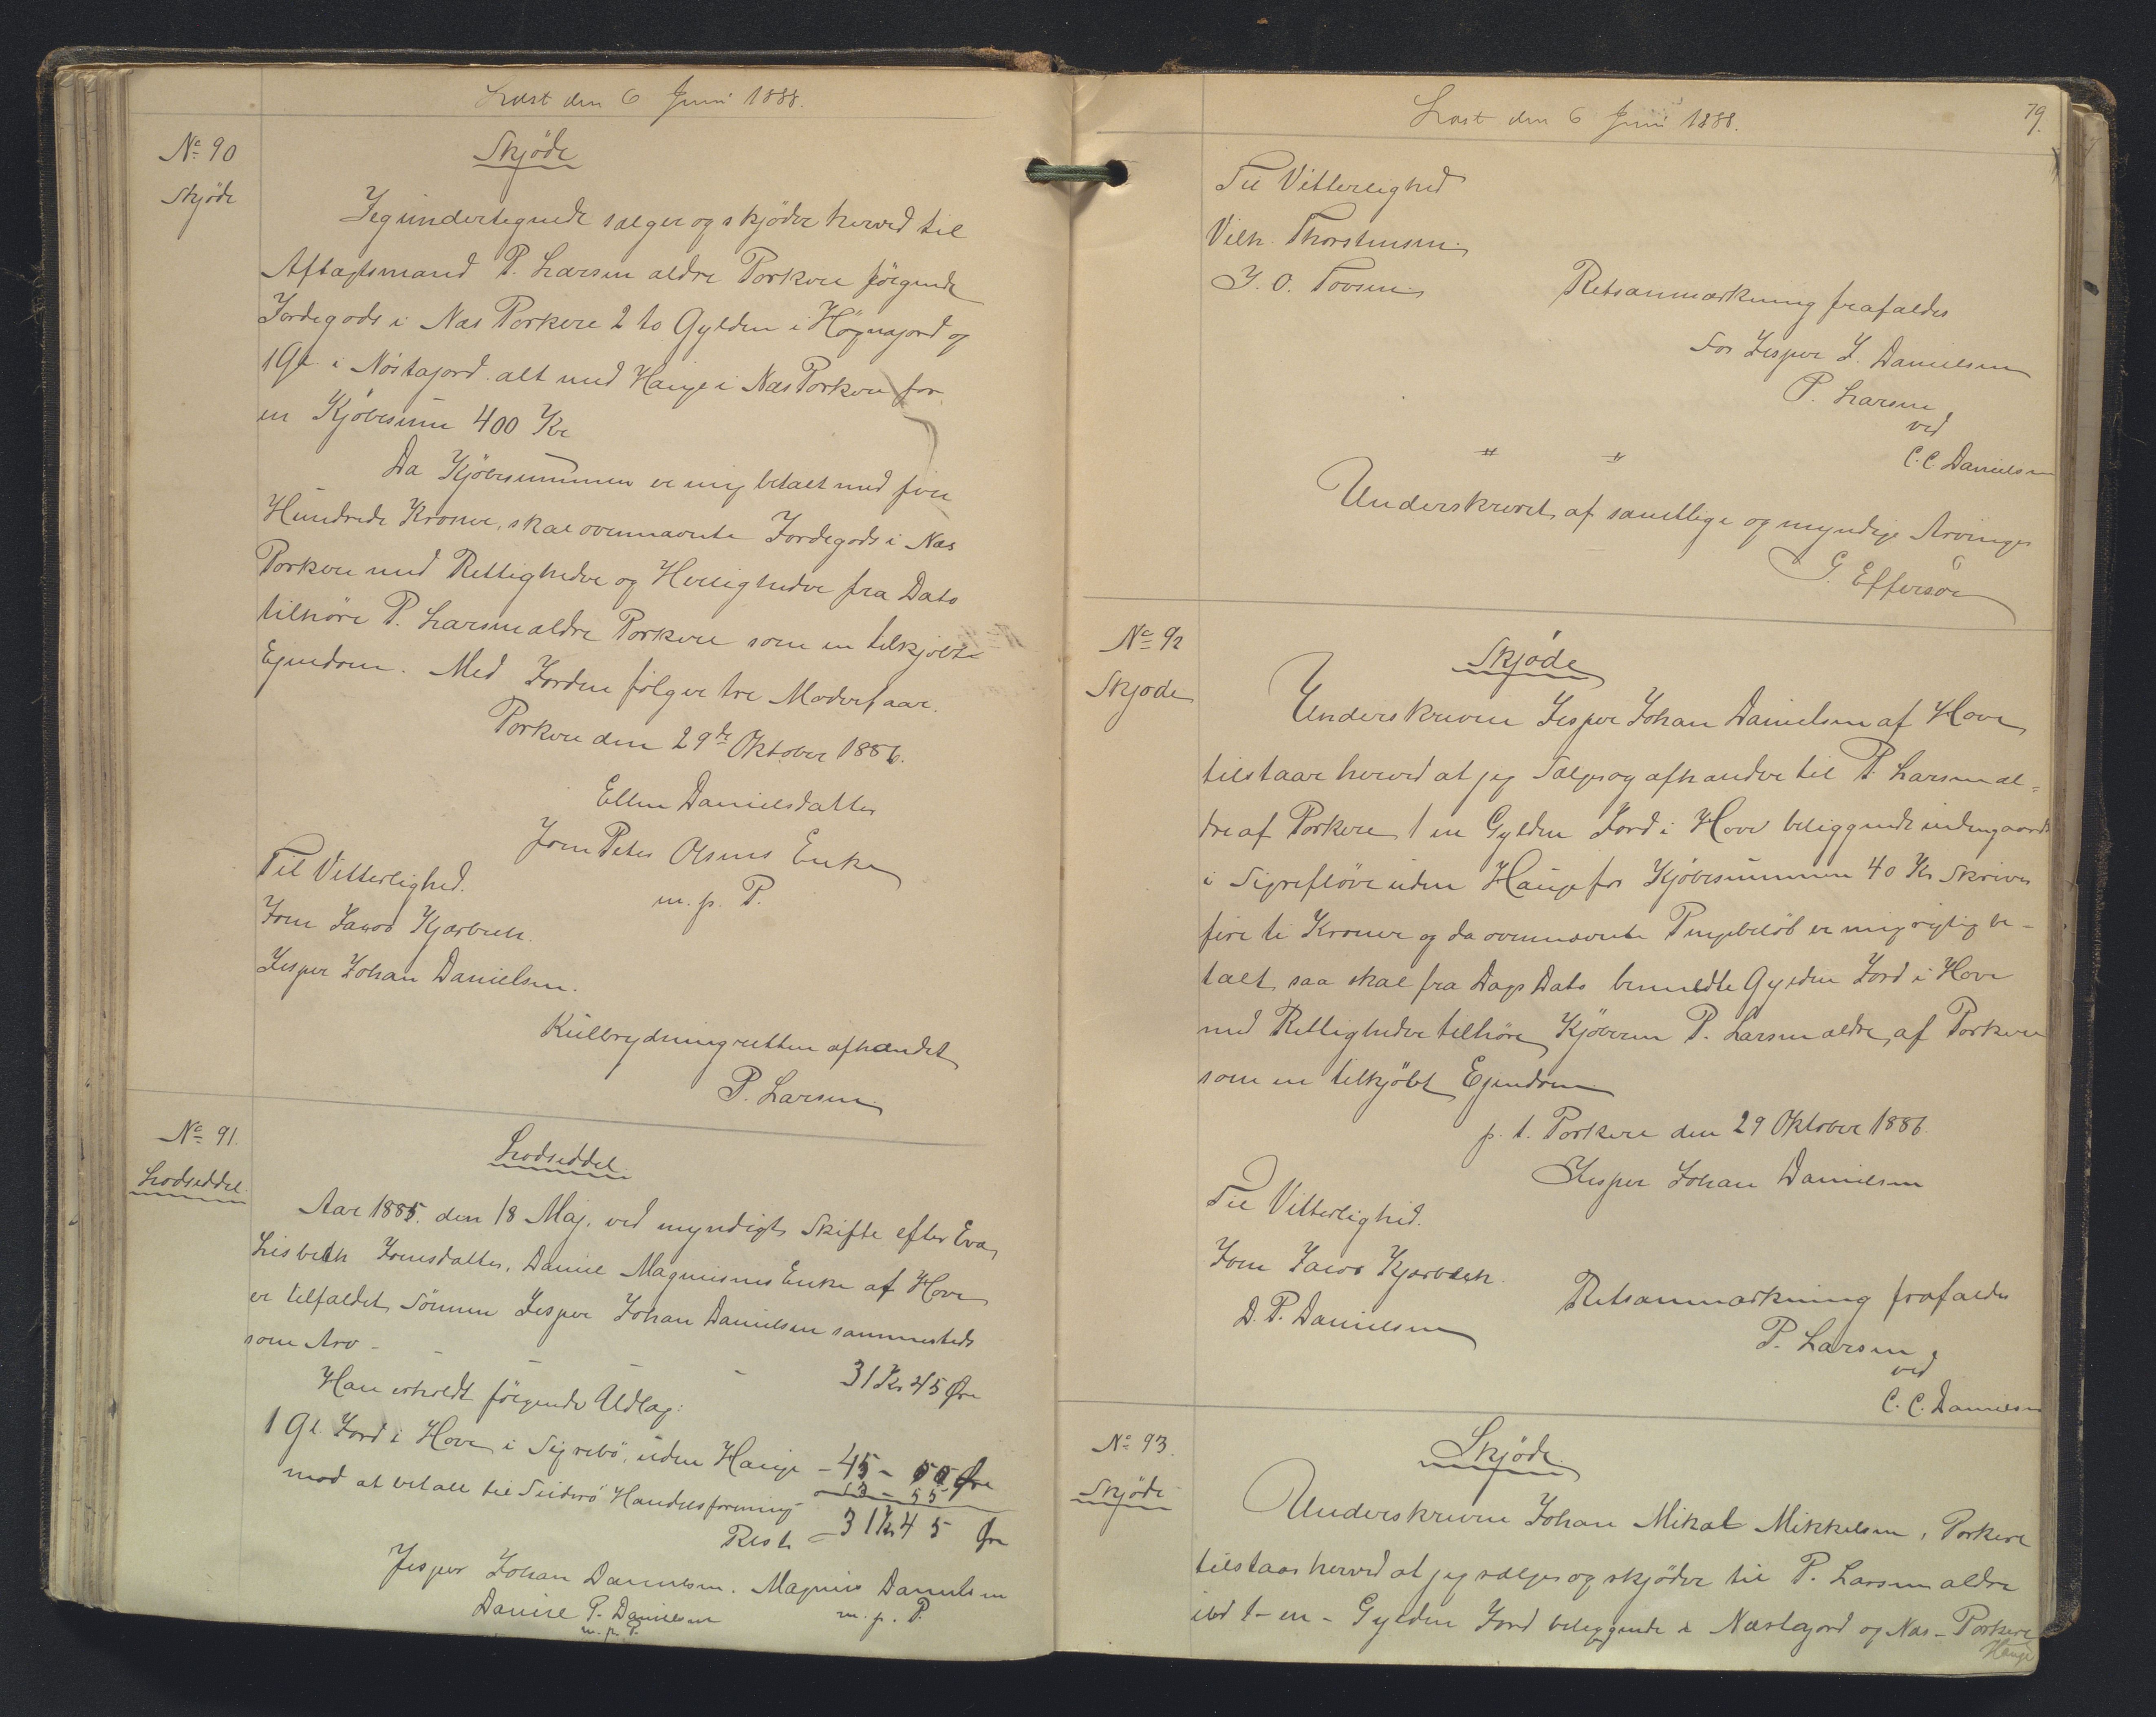 Læst den 6 Juni 1888.
No 90
Skjøde
Skjöde
Jeg undertegnede sælger og skjöder herved til
Aftagtsmand P. Larsen ældre Porkere fölgende
Jordegods i Næs Porkere 2 to Gylden i Högnajord og
1 Gl. i Nöstajord alt med Hauge i Næs Porkere for
en Kjöbesum 400 Kr
Da Kjöbesummen er mig betalt med fire
Hundrede Kroner, skal ovennævnte Jordegods i Næs
Porkere med Rettigheder og Herligheder fra Dato
tilhöre P. Larsen ældre Porkere som en tilkjöbt
Ejendom. Med Jorden fölger tre Moderfaar.
Porkere den 29de Oktober 1886.
Ellen Danielsdatter
Joen Peter Olsens Enke
m. p. P.
Til Vitterlighed.
Joen Jacob Kjærbech.
Jesper Johan Danielsen.
Kulbrydningretten afhændet
P. Larsen
No 91.
Lodseddel.
Lodseddel.
Aar 1885. den 18 Maj. ved myndigt Skifte efter Eva
Lisbeth Joensdatter, Daniel Magnusens Enke af Hove
er tilfaldet Sönnen Jesper Johan Danielsen sammesteds
som Arv - - - - 31 Kr 45 Øre
Han erholdt fölgende Udlæg:
1 Gl. Jord i Hove i Sigrebö, uden Hauge - 45 - 00 Øre
mod at betale til Suderö Handelsforening 13 - 55
Rest - 31 Kr 45 Øre
Jesper Johan Danielsen. Magnus Danielsen
m. p. P.
Daniel P. Danielsen
m. p. P.
Læst den 6 Juni 1888.
79.
Til Vitterlighed
Vilh. Thorstensen
J. O. Povsen
Retsanmærkning frafaldes
For Jesper J. Danielsen
P. Larsen
ved
C. C. Danielsen
" "
Underskrevet af samtlige og myndige Arvinger
G. Effersöe
No 92
Skjøde
Skjøde
Underskrevne Jesper Johan Danielsen af Hove
tilstaar herved at jeg Sælger og afhænder til P. Larsen æl=
dre af Porkere 1 en Gylden Jord i Hove beliggende indengaards
i Sigreflöve uden Hauge for Kjöbesummen 40 Kr Skriver
fire ti Kroner og da ovennævnte Pengebelöb er mig rigtig be-
talt, saa skal fra Dags Dato bemeldte Gylden Jord i Hove
med Rettigheder tilhöre Kjöberen P. Larsen ældre, af Porkere
som en tilkjöbt Ejendom
p. t. Porkere den 29 Oktober 1886.
Jesper Johan Danielsen
Til Vitterlighed.
Joen Jacob Kjærbech.
D. P. Danielsen
Retsanmærkning frafaldes
P. Larsen
ved
C. C. Danielsen
No 93.
Skjöde
Skjöde
Underskrevne Johan Mikal Mikkelsen, Porkere
tilstaar herved at jeg sælger og skjöder til P. Larsen ældre
ibd 1 - en - Gylden Jord beliggende i Næstajord og Næs - Porkere
Hauge